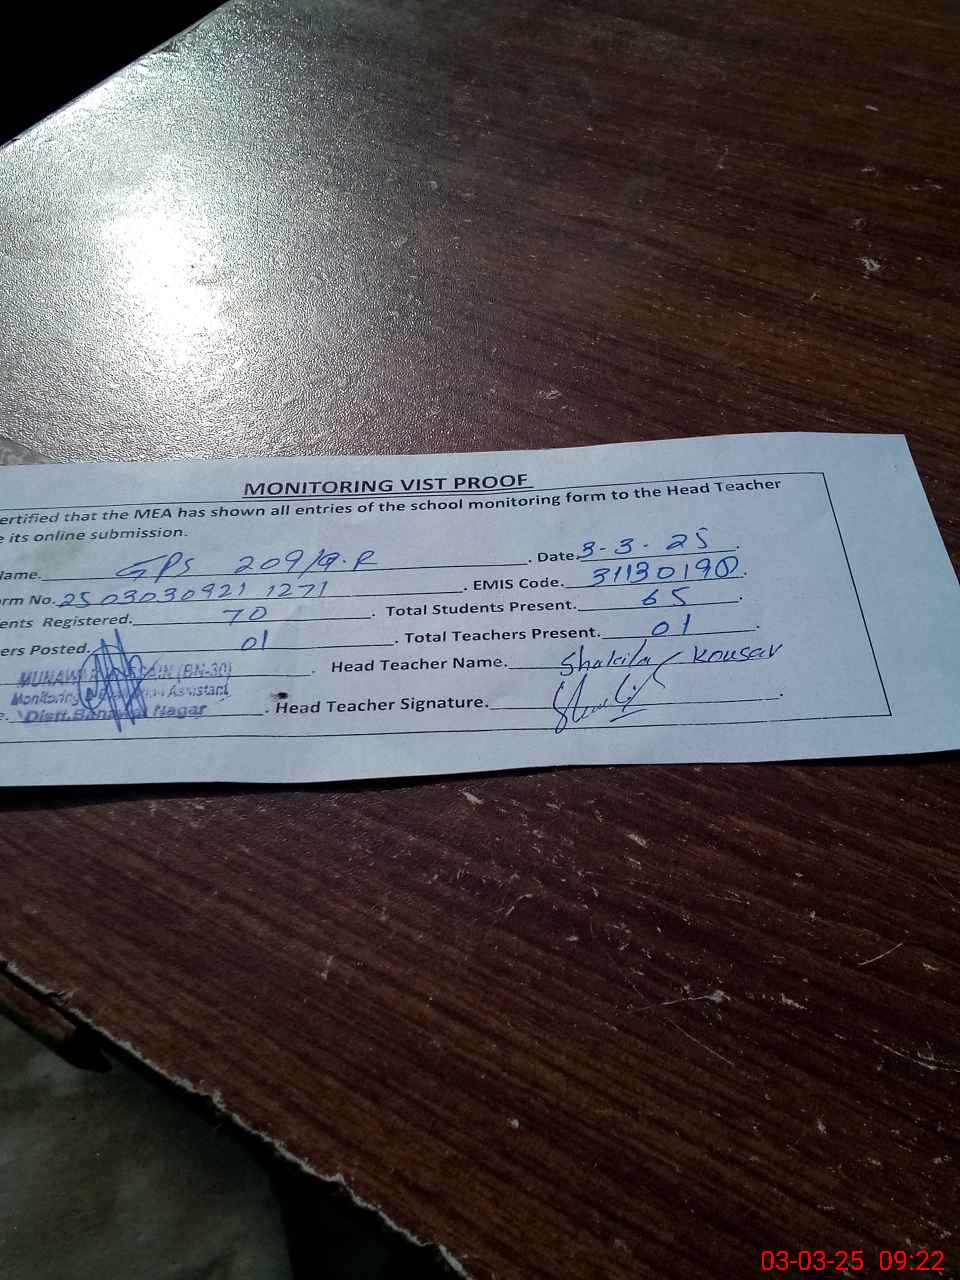 MONITORING VIST PROOF
ertified that the MEA has shown all entries of the school monitoring form to the Head Teacher
e its online submission.
lame. GPS 209/9.R . Date. 3-3-25 .
rm No. 2503030921 1271 . EMIS Code. 3113019 .
ents Registered. 70 . Total Students Present. 65 .
ers Posted. 01 . Total Teachers Present. 01 .
MUNAWAR (BN-30) . Head Teacher Name. Shakila Kousar
Monitoring Assistant
e. Distt. Nagar . Head Teacher Signature. .
03-03-25 09:22